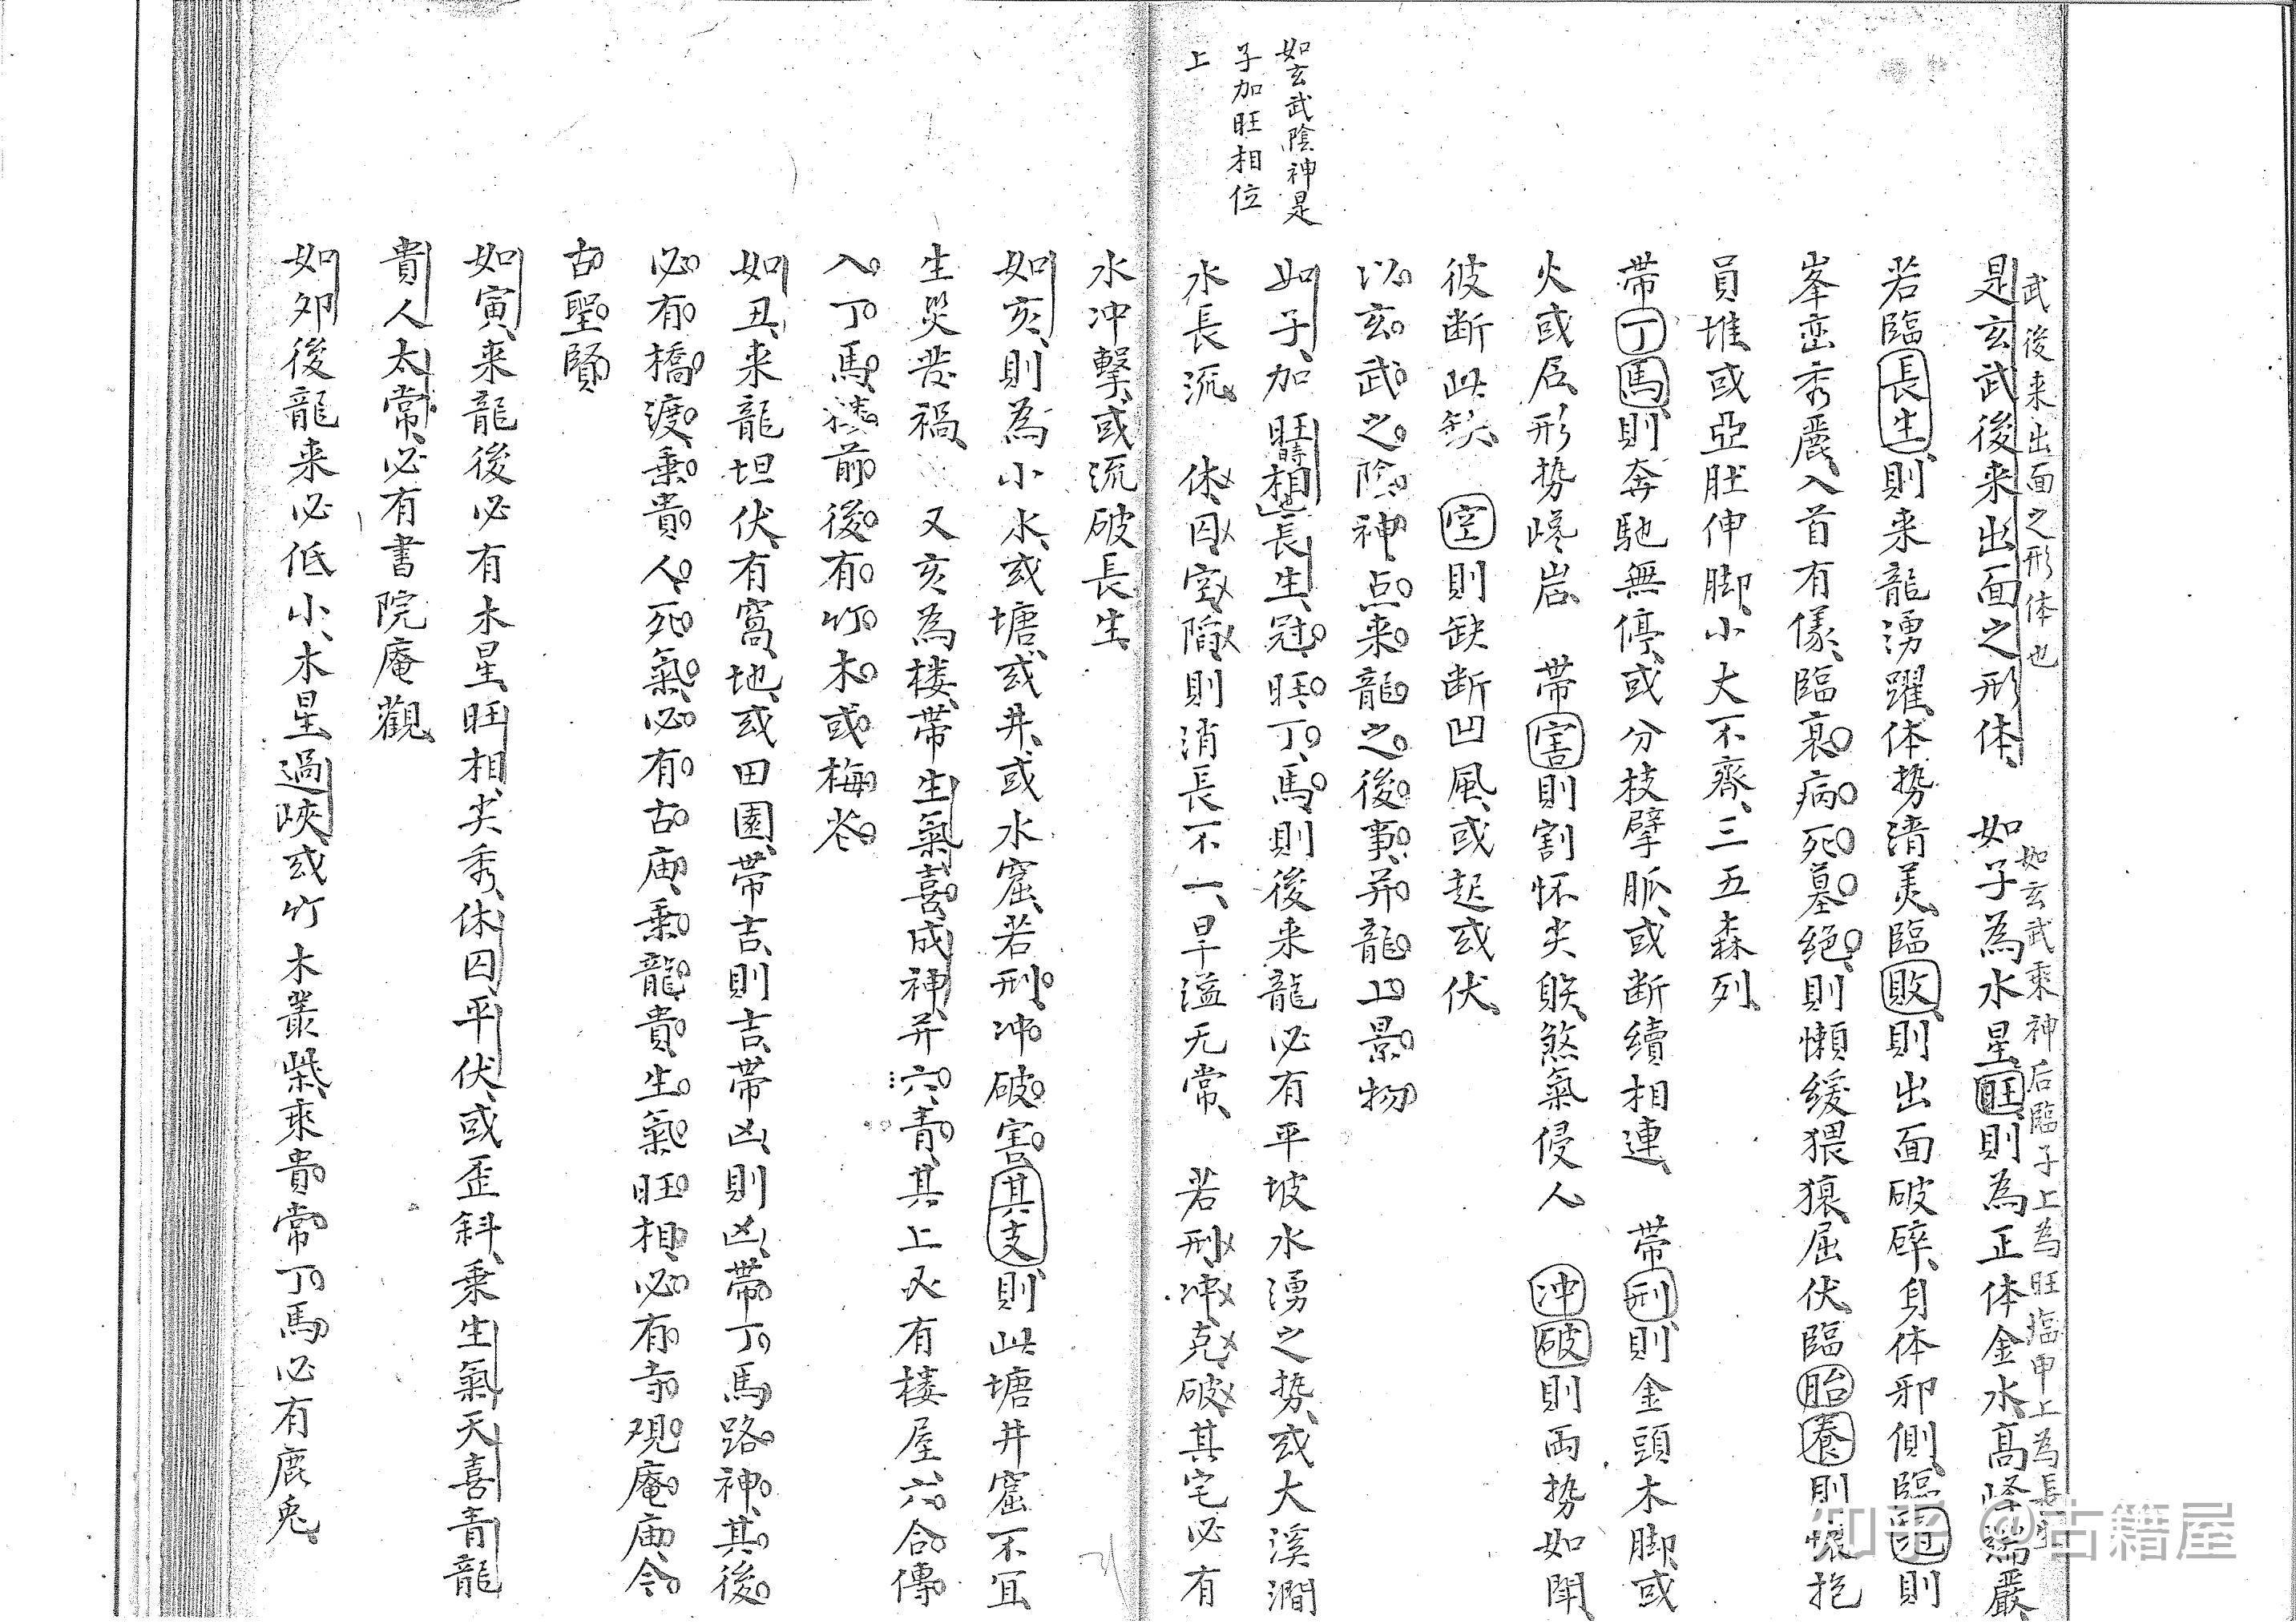 如玄武陰神是
子加旺相位
上
武後来出面之形体也
如玄武乘神后臨子上為旺臨申上為長生
是玄武後来出面之形体、如子為水星旺、則為正体金水、高峰端嚴、
若臨長生、則来龍湧躍体势清美、臨敗、則出面破碎、身体邪側、臨冠則
峯峦秀麗、入首有㣻、臨衰病死墓絕、則懶緩猥㹝、屈伏、臨胎養、則懷抱
員堆、或亞肚伸脚、小大不齊、三五森列、
帶丁馬、則奔馳無停、或分枝擘脈、或断續相連、帶刑則金頭木脚、或
火或局、形势嵯岩　帶害則割怀尖躲、煞氣侵人　冲破則两势如閗、
彼断此缺、空則缺断凹風、或起或伏、
以玄武之陰神、点来龍之後事、并龍上景物
如子、加旺時相也長生、冠旺、丁馬、則後来龍必有平坡水湧之势、或大溪澗
水長流　休囚空陷、則消長不一、旱溢无常、若刑冲克破、其宅必有
水冲擊、或流破長生、
如亥、則為小水、或塘、或井、或水窟、若刑冲破害其支、則此塘井窟不宜
生災發禍、又亥為楼、帶生氣喜成神、并六青、其上又有楼屋、六合傳
入丁馬、楼前後有竹木、或梅花
如丑、来龍坦伏、有窩地、或田園、帶吉、則吉、帶凶、則凶、帶丁馬路神、其後
必有橋渡、乘貴人死氣、必有古庙、乘龍貴生氣旺相、必有寺观庵庙、令
古聖賢
如寅、来龍後必有木星、旺相、尖秀、休囚、平伏、或歪斜、乘生氣天喜青龍
貴人太常、必有書院庵觀、
如夘後龍来必低小、木星過峽、或竹木叢柴、乘貴常丁馬必有鹿兎、
知乎 @古籍屋